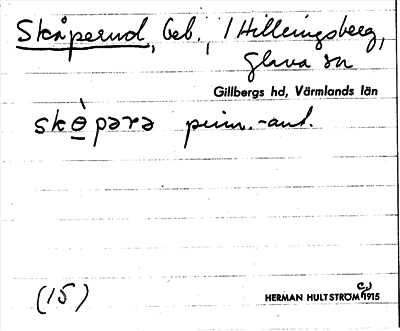 Skåperud, Geb., 1 Hillringsberg,
Glava sn
Gillbergs hd, Värmlands län
skɵ̀pərə
(15)
HERMAN HULTSTRÖM 1915